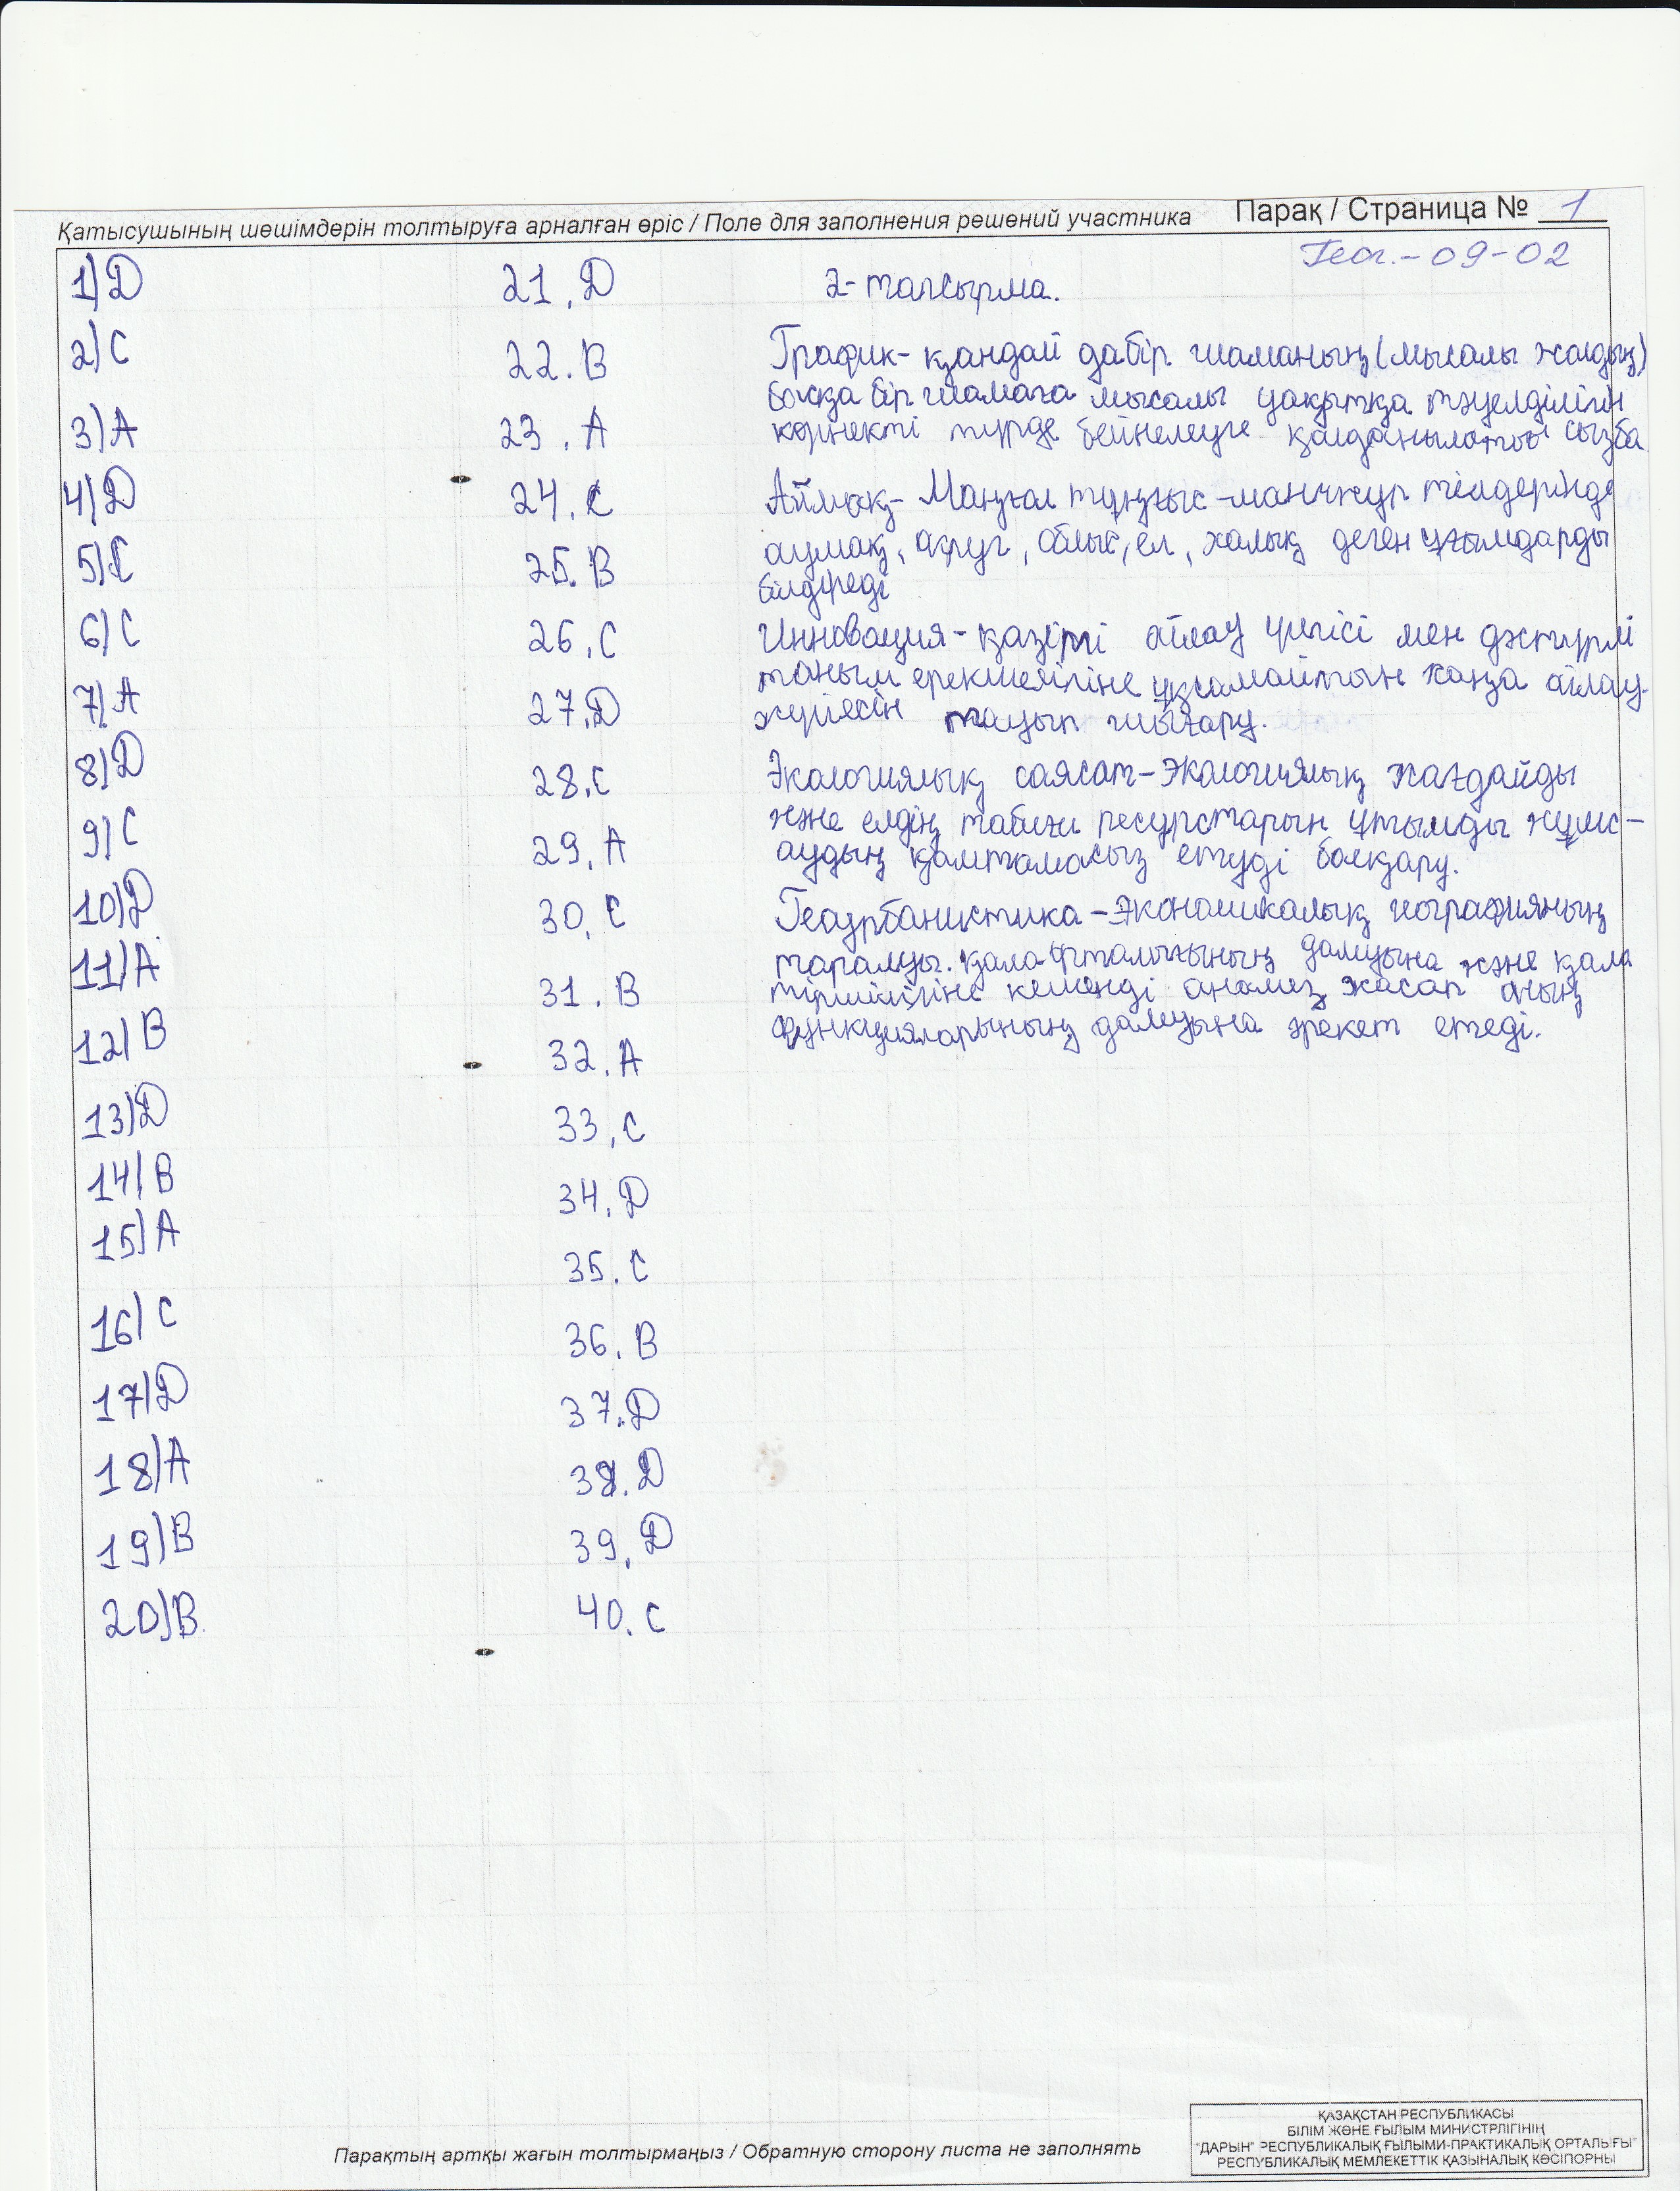 Қатысушының шешімдерін толтыруға арналған өріс / Поле для заполнения решений участника
Парақ / Страница № 1
Геог.-09-02
1) D
2) C
3) A
4) D
5) C
6) C
7) A
8) D
9) C
10) D
11) A
12) B
13) D
14) B
15) A
16) C
17) D
18) A
19) B
20) B.
21. D
22. B
23. A
24. C
25. B
26. C
27. D
28. C
29. A
30. C
31. B
32. A
33. C
34. D
35. C
36. B
37. D
38. D
39. D
40. C
2-тапсырма.
График- қандай да бір шаманың (мысалы жолдың)
басқа бір шамаға мысалы уақытқа тәуелділігін
көрнекті түрде бейнелеуге қолданылатын сызба
Аймақ- Маңғол тұңғыс-манчжур тілдерінде
аумақ, округ, облыс, ел, халық деген ұғымдарды
білдіреді
Инновация- қазіргі ойлау үлгісі мен дәстүрлі
таным ерекшелігіне ұқсамайтын жаңа ойлау
жүйесін тауып шығару.
Экологиялық саясат-экологиялық жағдайды
және елдің табиғи ресурстарын ұтымды жұмс-
аудың қамтамасыз етуді басқару.
Геоурбанистика-экономикалық географияның
таралуы. қала орталығының дамуына және қала
тіршілігіне кешенді анализ жасап оның
функцияларының дамуына әрекет етеді.
Парақтың артқы жағын толтырмаңыз / Обратную сторону листа не заполнять
ҚАЗАҚСТАН РЕСПУБЛИКАСЫ
БІЛІМ ЖӘНЕ ҒЫЛЫМ МИНИСТРЛІГІНІҢ
"ДАРЫН" РЕСПУБЛИКАЛЫҚ ҒЫЛЫМИ-ПРАКТИКАЛЫҚ ОРТАЛЫҒЫ"
РЕСПУБЛИКАЛЫҚ МЕМЛЕКЕТТІК ҚАЗЫНАЛЫҚ КӘСІПОРНЫ